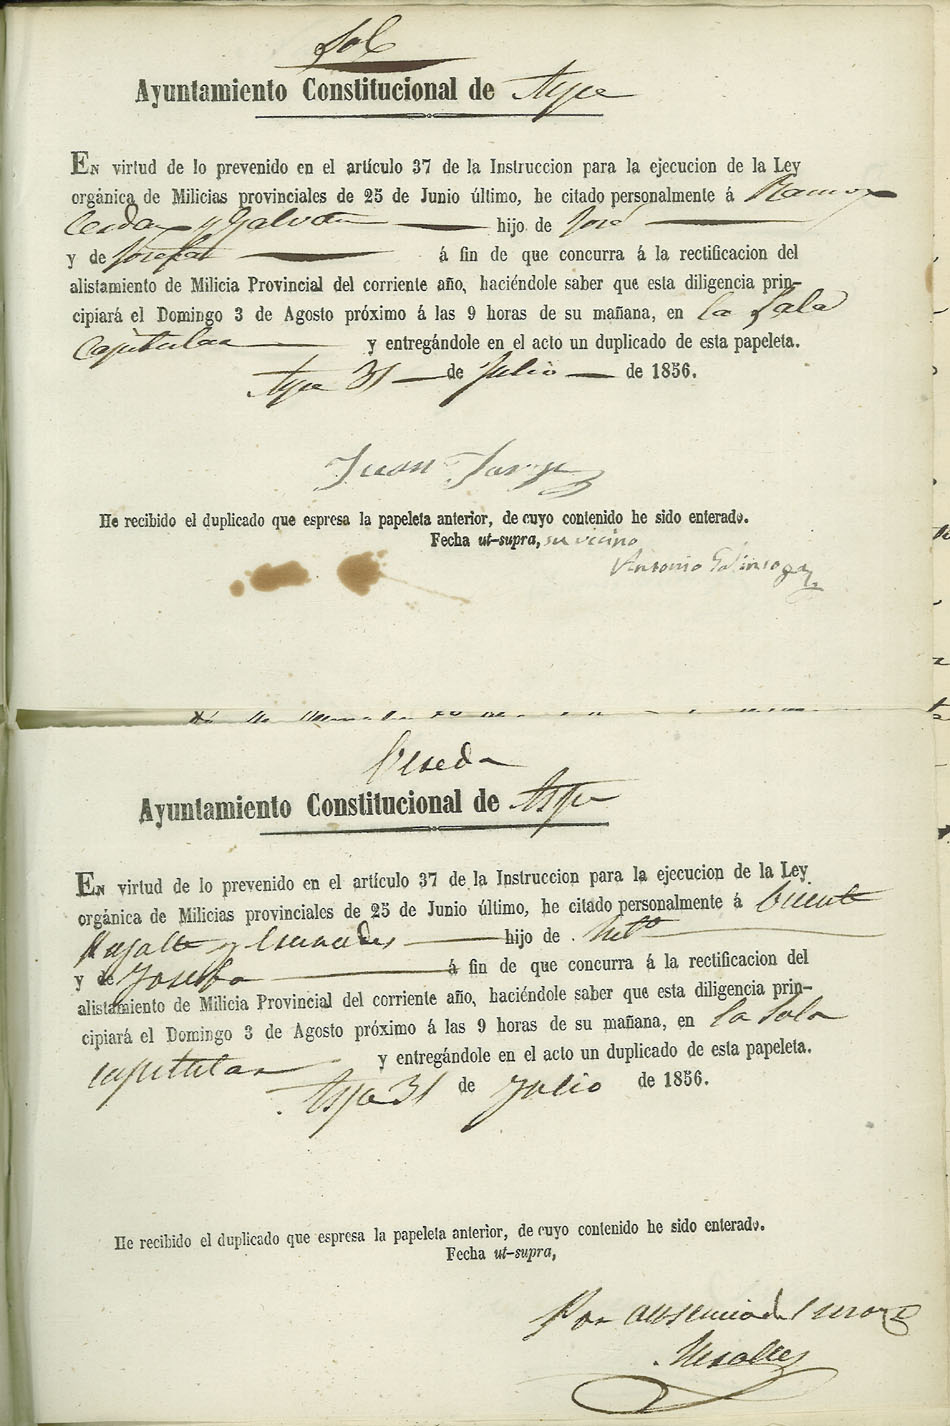 Sol
Ayuntamiento Constitucional de Aspe
EN virtud de lo prevenido en el artículo 37 de la Instruccion para la ejecucion de la Ley
orgánica de Milicias provinciales de 25 de Junio último, he citado personalmente á Ramon
Cerdan y Galvañ hijo de José
y de Josefa á fin de que concurra á la rectificacion del
alistamiento de Milicia Provincial del corriente año, haciéndole saber que esta diligencia prin-
cipiará el Domingo 3 de Agosto próximo á las 9 horas de su mañana, en la Sala
Capitular y entregándole en el acto un duplicado de esta papeleta.
Aspe 31 de Julio de 1856.
Juan
He recibido el duplicado que espresa la papeleta anterior, de cuyo contenido he sido enterado.
Fecha ut-supra, su vicino
Antonio
Ayuntamiento Constitucional de Aspe
EN virtud de lo prevenido en el artículo 37 de la Instruccion para la ejecucion de la Ley
orgánica de Milicias provinciales de 25 de Junio último, he citado personalmente á Vicente
y hijo de
y de Josefa á fin de que concurra á la rectificacion del
alistamiento de Milicia Provincial del corriente año, haciéndole saber que esta diligencia prin-
cipiará el Domingo 3 de Agosto próximo á las 9 horas de su mañana, en la Sala
capitular y entregándole en el acto un duplicado de esta papeleta.
Aspe 31 de Julio de 1856.
He recibido el duplicado que espresa la papeleta anterior, de cuyo contenido he sido enterado.
Fecha ut-supra,
Por ausencia del mozo
Miralles